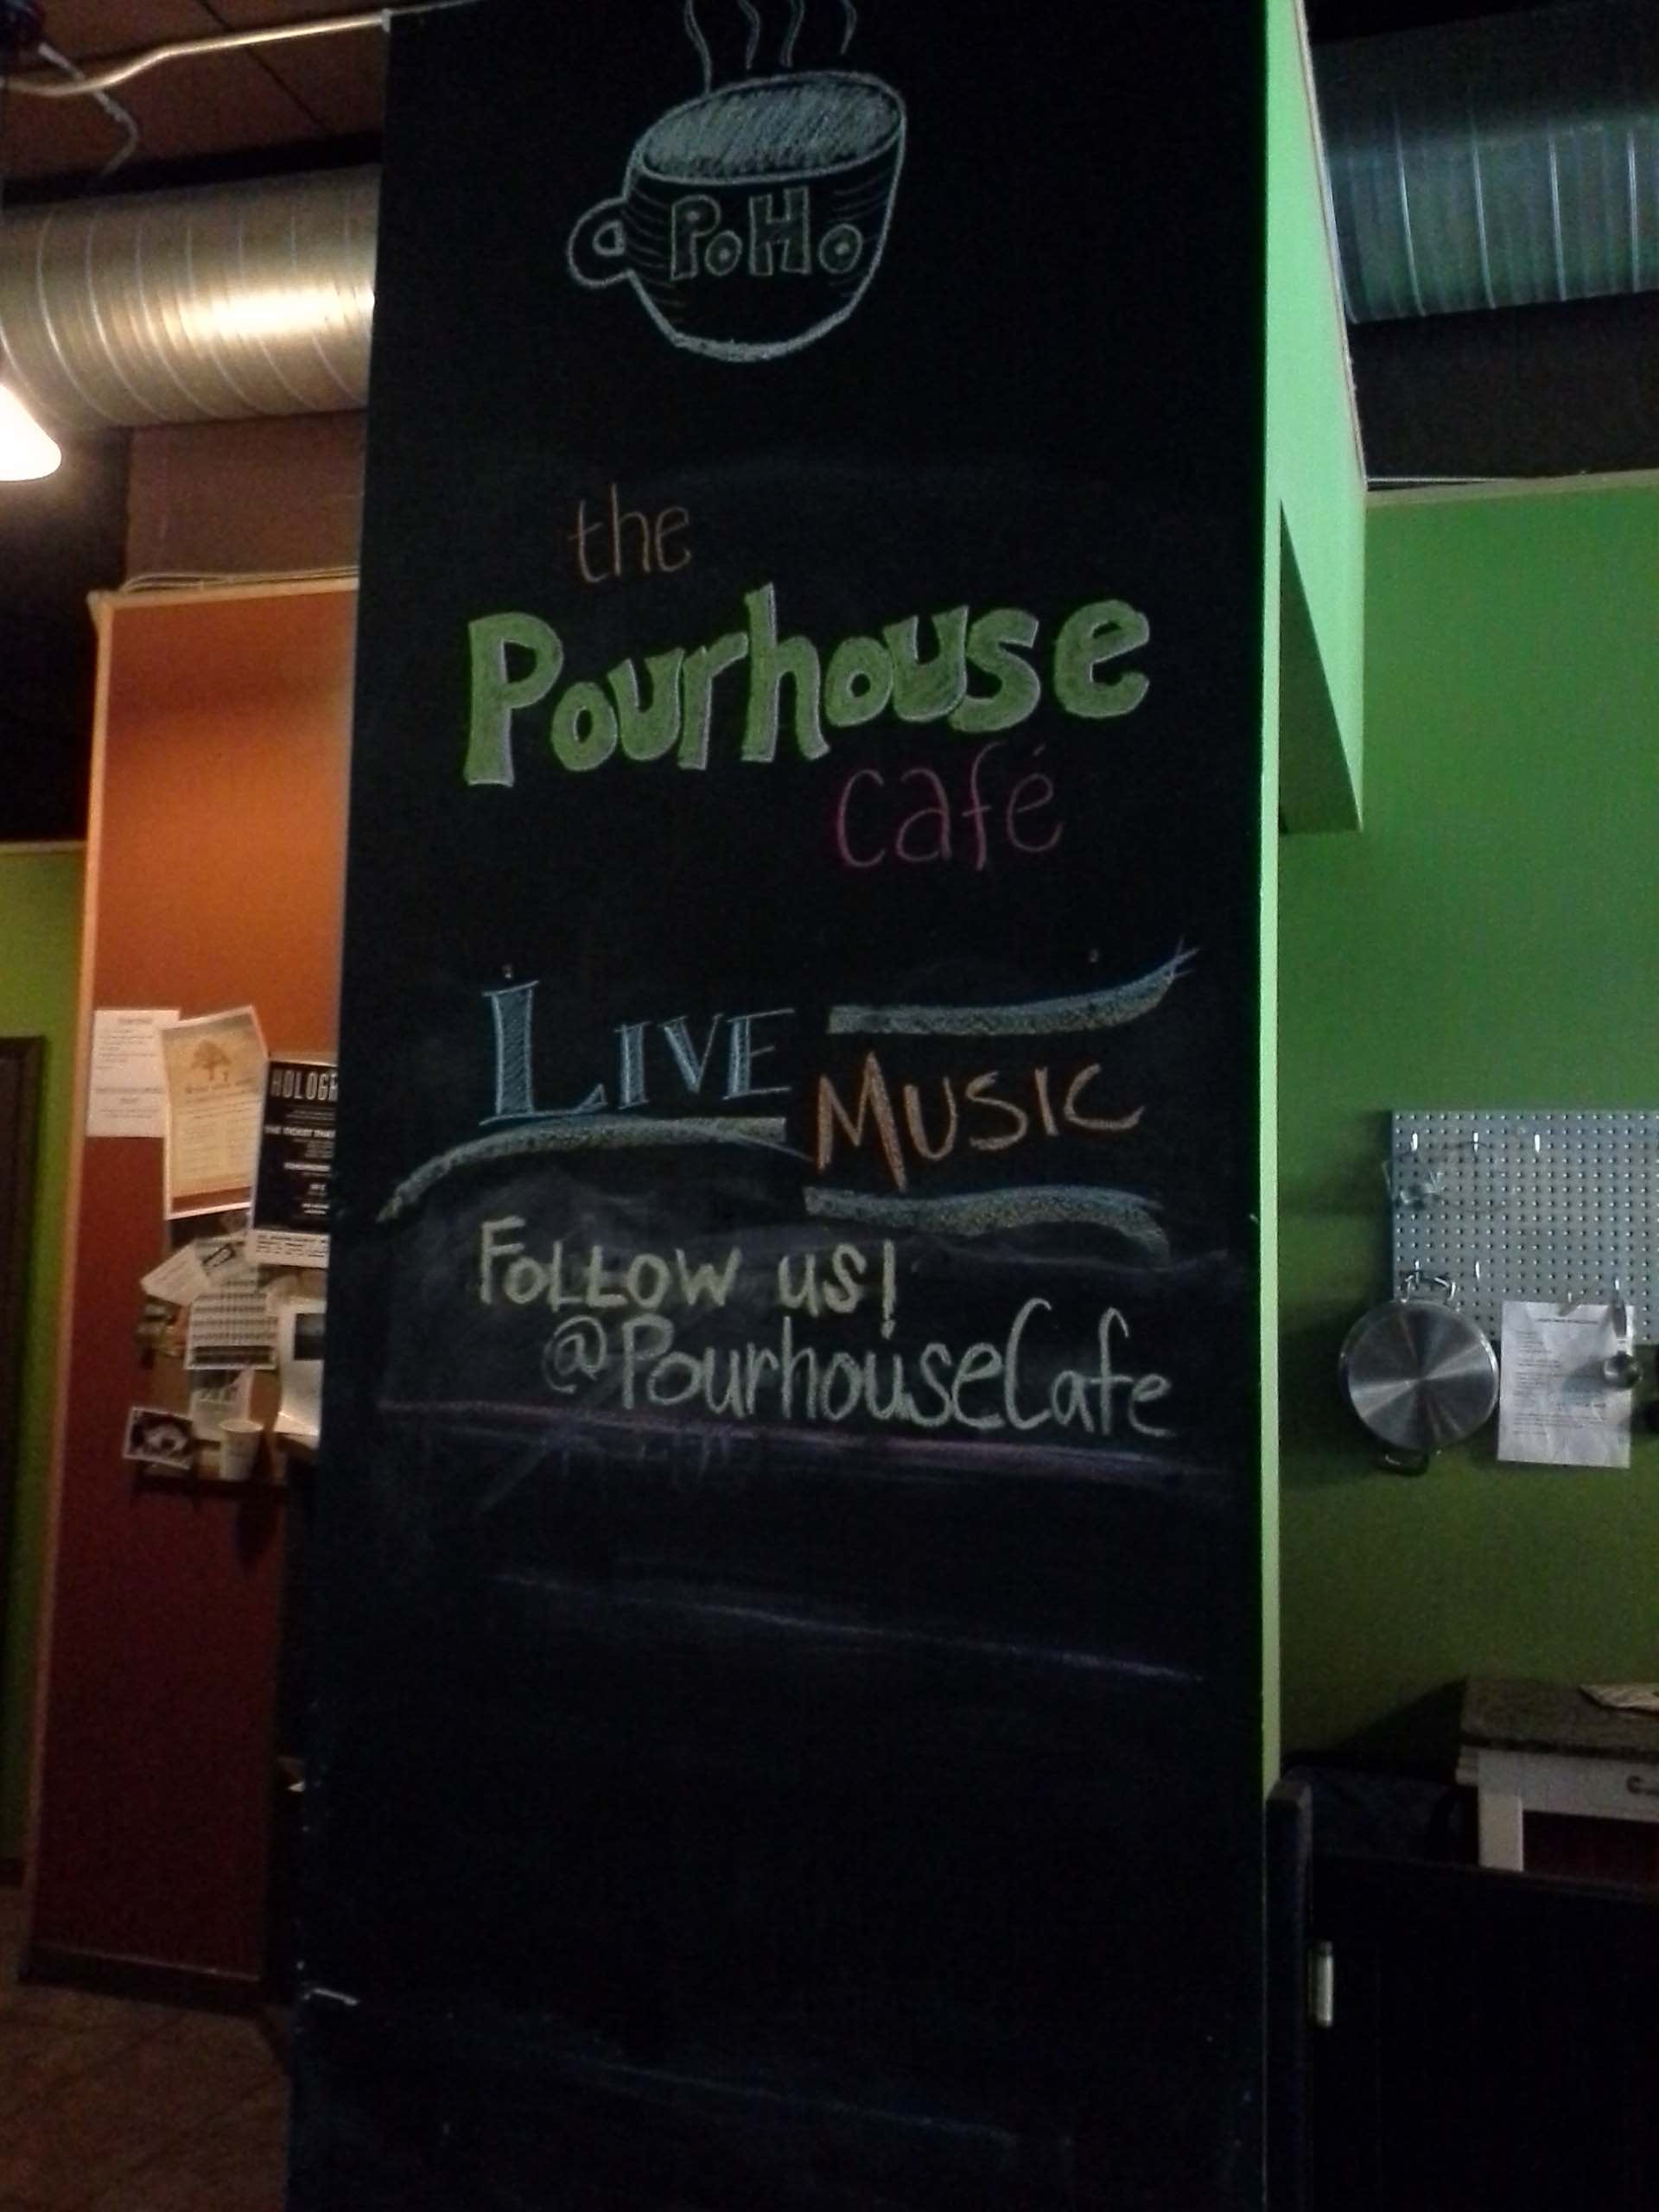 PoHo
the
Pourhouse
café
LIVE
MUSIC
FOLLOW us!
@PourhouseCafe
HOLOGR
THE TICKET THAT